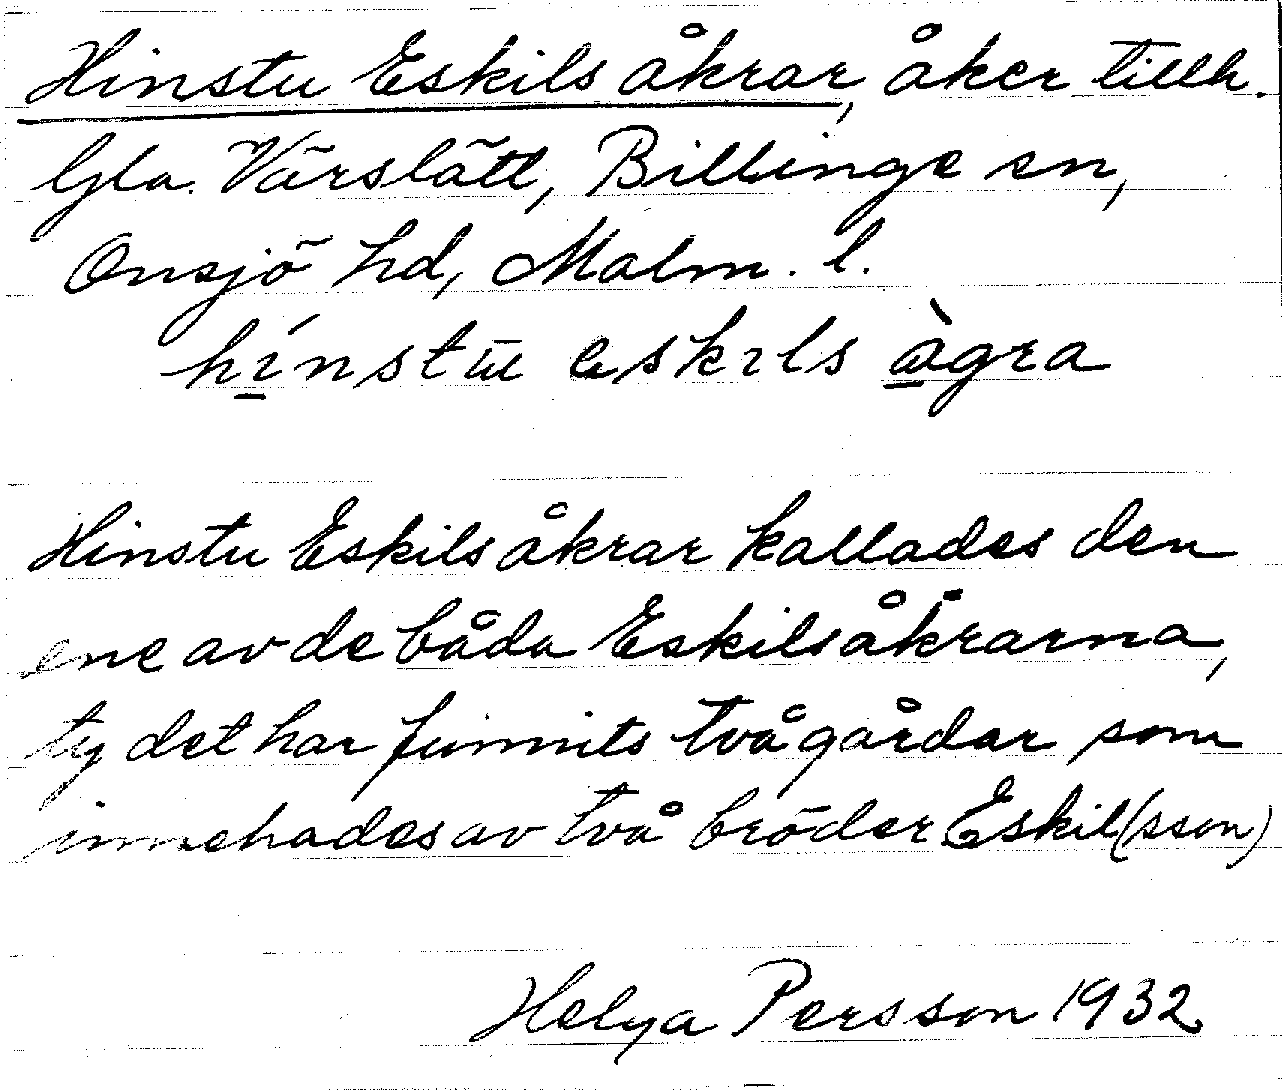 Hinstu Eskils åkrar, åker tillh.
Gla. Värslätt, Billinge sn,
Onsjö hd, Malm. l.
hínstū eskɪls àgra
Hinstu Eskils åkrar kallades den
ene av de båda Eskilsåkrarna,
ty det har funnits två gårdar som
innehades av två bröder Eskil(sson)
Helga Persson 1932